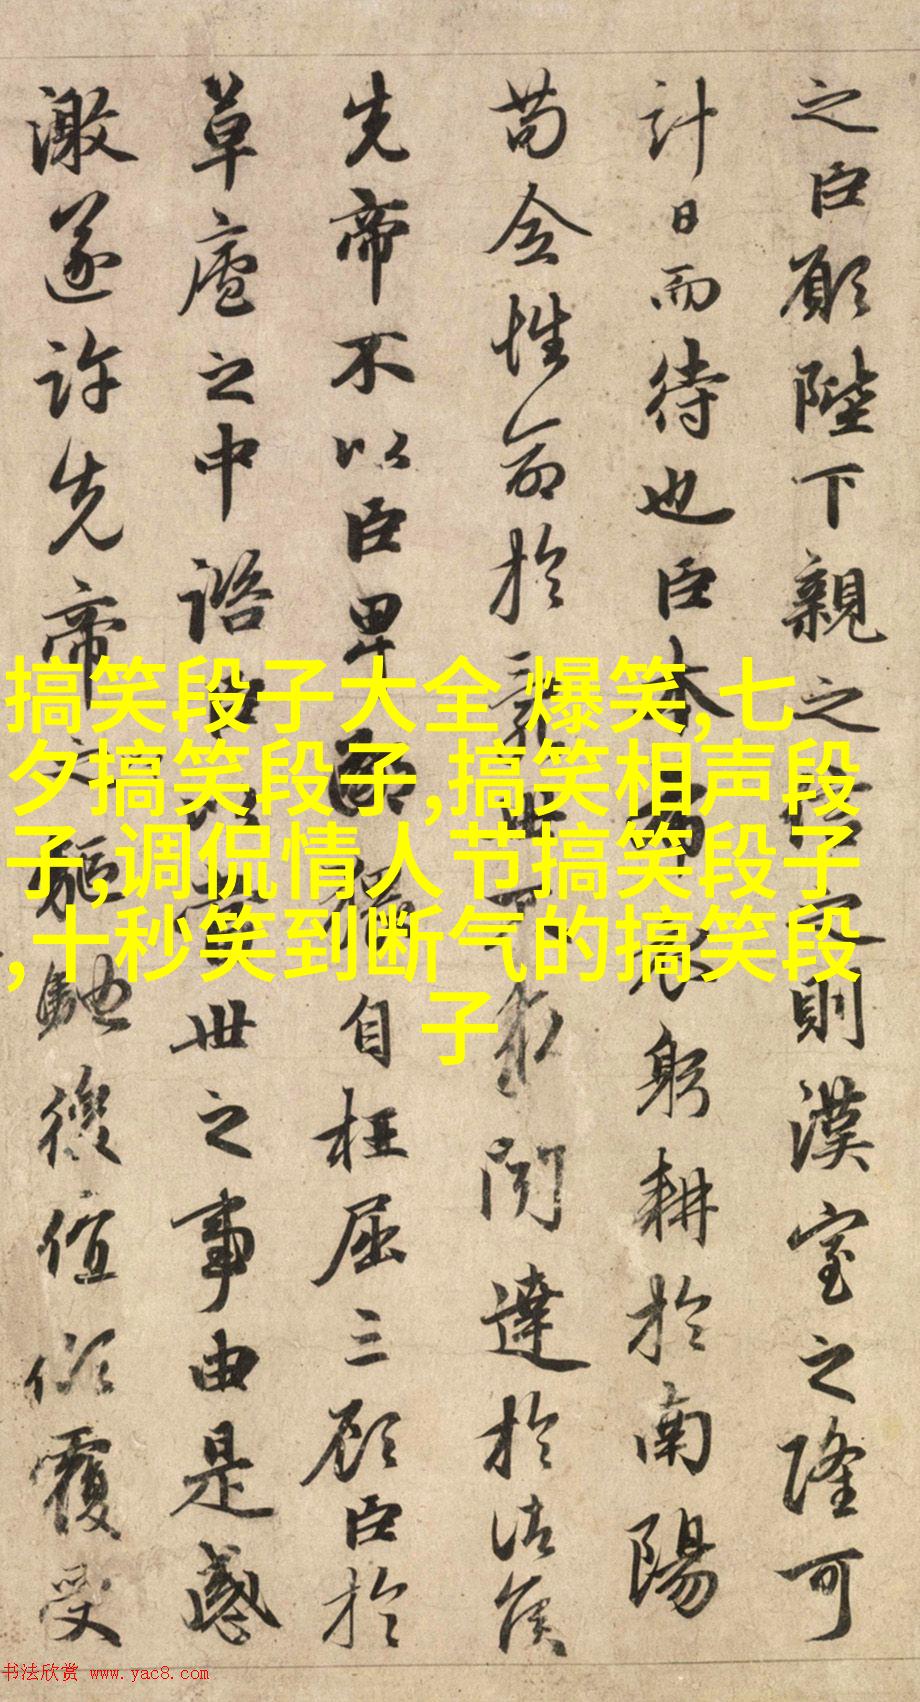 之臣願陛下親之信之則漢室之隆可
計日而待也臣本布衣躬耕於南陽
苟全性命於亂世不求聞達於諸侯
先帝不以臣卑鄙猥自枉屈三顧臣於
草廬之中諮臣以當世之事由是感
激遂許先帝以驅馳後值傾覆受
搞笑段子大全 爆笑,七
夕搞笑段子,搞笑相声段
子,调侃情人节搞笑段子
,十秒笑到断气的搞笑段
子
书法欣赏 www.yac8.com